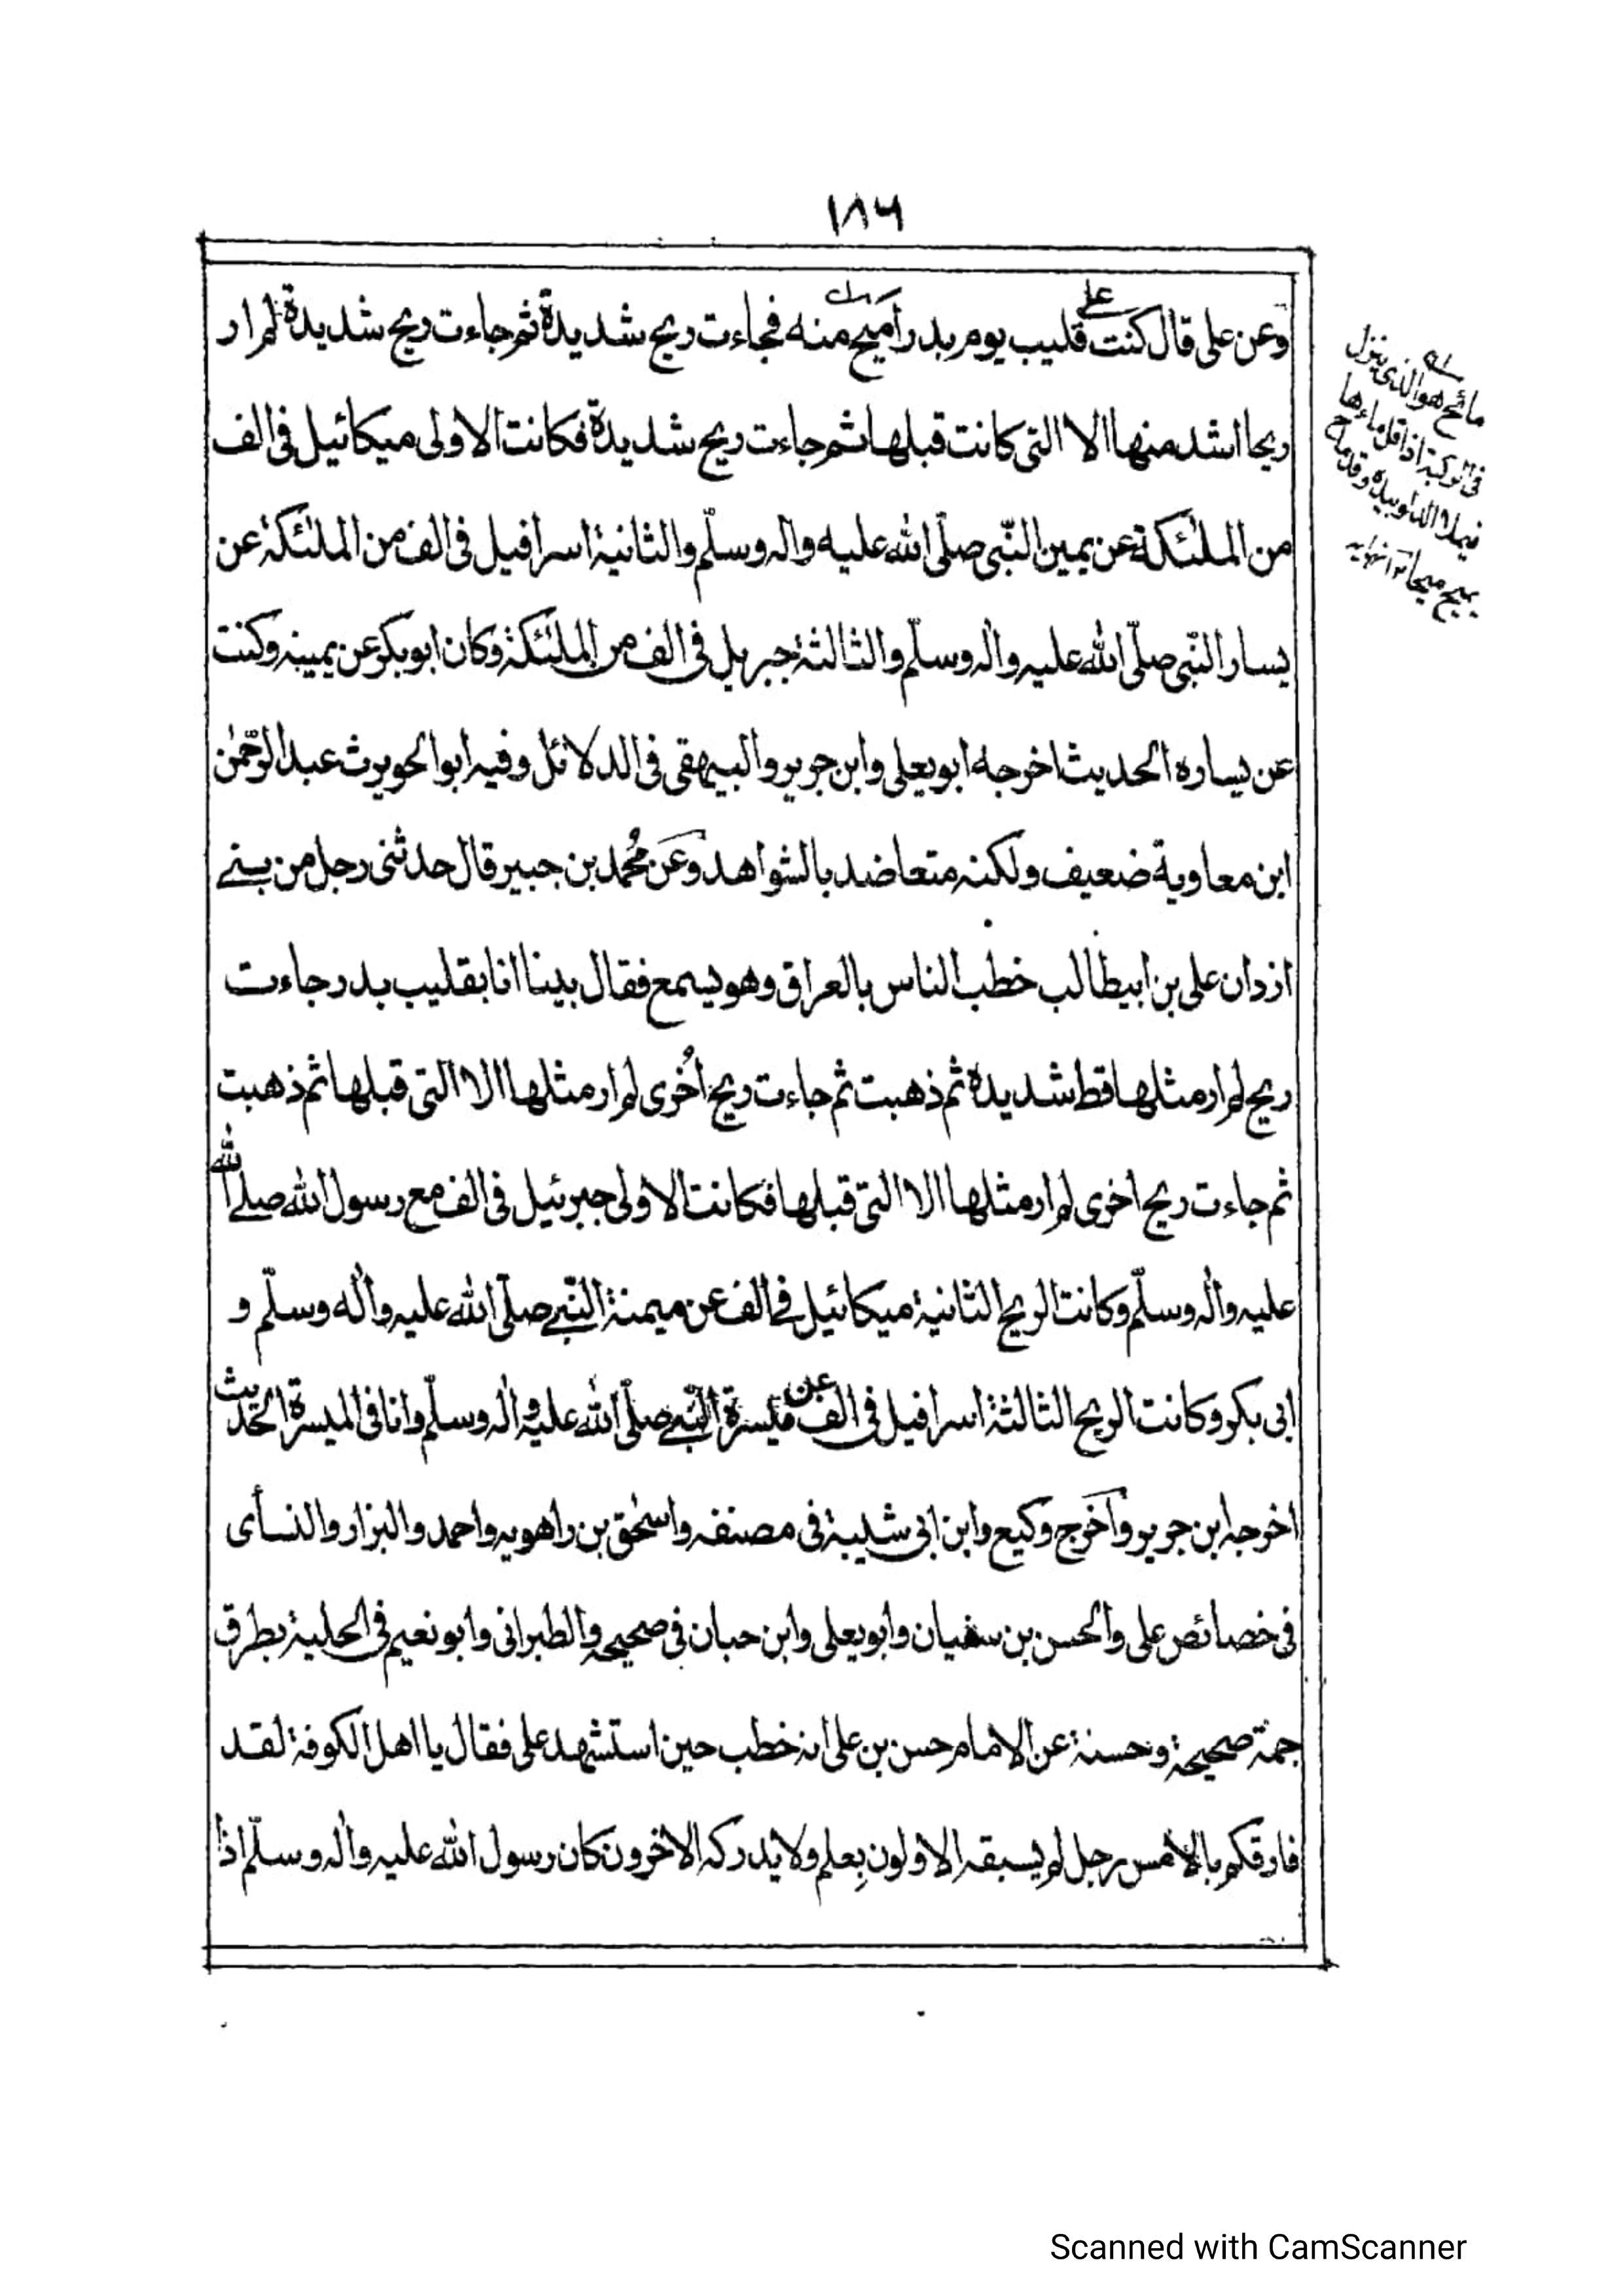 ۱۸۶
وعن علی قال کنت علے قلیب یوم بدر أمیح منه فجاءت ریح شدیدة ثم جاءت ریح شدیدة لم ار
ریحا اشد منها الا التی کانت قبلها ثم جاءت ریح شدیدة فکانت الاولی میکائیل فی الف
من الملئکة عن یمین النّبی صلّی الله علیه واله وسلّم والثانیة اسرافیل فی الف من الملئکة عن
یسار النّبی صلّی الله علیه واٰله وسلّم والثالثة جبریل فی الف من الملئکة وکان ابوبکر عن یمینه وکنت
عن یساره الحدیث اخرجه ابویعلی وابن جریر والبیهقی فی الدلائل وفیه ابوالحویرث عبدالرّحمٰن
ابن معاویة ضعیف ولکنه متعاضد بالشواهد وعن محُمد بن جبیر قال حدثنی رجل من بنے
ازد ان علی بن ابیطالب خطب الناس بالعراق وهو یسمع فقال بینا انا بقلیب بدر جاءت
ریح لم ار مثلها قط شدیدة ثم ذهبت ثم جاءت ریح اُخری لم ار مثلها الا التی قبلها ثم ذهبت
ثم جاءت ریح اخری لم ار مثلها الا التی قبلها فکانت الاولی جبرئیل فی الف مع رسول الله صلے الله
علیه واٰله وسلّم وکانت الریح الثانیة میکائیل فے الف عن میمنة النّبے صلّی الله علیه واٰله وسلّم و
ابی بکر وکانت الریح الثالثة اسرافیل فی الف عن میسرة النّبے صلّی الله علیه واٰله وسلّم وانا فی المیسرة الحدیث
اخرجه ابن جریر واخرج وکیع وابن ابی شیبة فی مصنفه واسحٰق بن راهویه واحمد والبزار والنسأی
فی خصائص علی والحسن بن سفیان وابویعلی وابن حبان فی صحیحه والطبرانی وابونعیم فی الحلیة بطرق
جمة صحیحة وحسنة عن الامام حسن بن علی انه خطب حین استشهد علی فقال یا اهل الکوفة لقد
فارقکم بالامس رجل لم یسبقه الاولون بِعلم ولا یدرکه الاخرون کان رسول الله علیه واٰله وسلّم اذا
مائح هو الذی ینزل
فی الرکیة اذا قل ماءها
فیملا الدلو بیده وقد ماح
یمیح میحا ۱۲ نهایه
Scanned with CamScanner